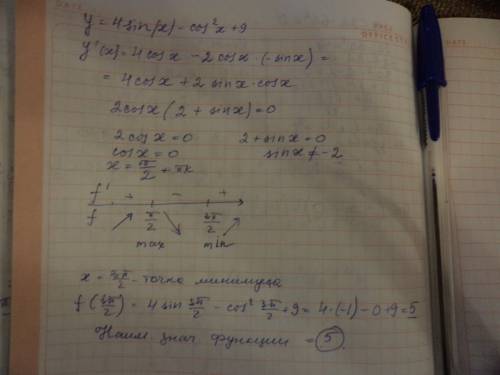 y = 4 sin(x) - cos²x + 9
y'(x) = 4 cosx - 2 cosx · (-sinx) =
= 4 cosx + 2 sinx · cosx
2 cosx (2 + sinx) = 0
2 cosx = 0 2 + sinx = 0
cosx = 0 sinx ≠ -2
x = π/2 + πk
f' + - +
f π/2 3π/2
max min
x = 3π/2 - точка минимума
f(3π/2) = 4 sin 3π/2 - cos² 3π/2 + 9 = 4·(-1) - 0 + 9 = 5
Наим знач функции = 5
DATE